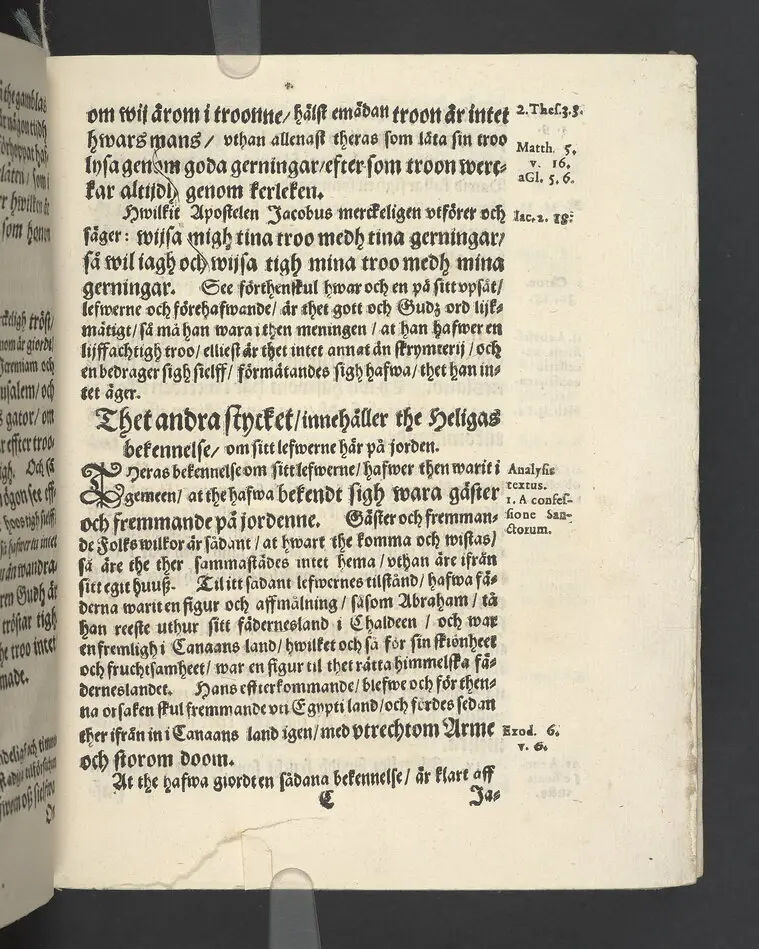 om wij ärom i troonne/ hälst emädan troon är intet
hwars mans/ vthan allenast theras som läta sin troo
lysa genom goda gerningar/efter som troon werc-
kar altijdh genom kerleken.
Hwilkit Apostelen Jacobus merckeligen vtförer och
säger: wijsa migh tina troo medh tina gerningar/
så wil iagh och wijsa tigh mina troo medh mina
gerningar. See förthenskul hwar och en på sitt vpsåt/
lefwerne och förehafwande/ är thet gott och Gudz ord lijk-
mätigt/ så må han wara i then meningen/ at han hafwer en
lijffachtigh troo/ elliest är thet intet annat än skrymterij/ och
en bedrager sigh sielff/ förmätandes sigh hafwa/ thet han in-
tet äger.
Thet andra stycket/innehåller the Heligas
bekennelse/ om sitt lefwerne här på jorden.
THeras bekennelse om sitt lefwerne/ hafwer then warit i
gemeen/ at the hafwa bekendt sigh wara gäster
och fremmande på jordenne. Gäster och fremman-
de Folks wilkor är sådant/ at hwart the komma och wistas/
så äre the ther sammastädes intet hema/ vthan äre ifrån
sitt egit huuß. Til itt sådant lefwernes tilstånd/ hafwa fä-
derna warit en figur och affmålning/ såsom Abraham/ tå
han reeste uthur sitt fädernesland i Chaldeen/ och war
en fremligh i Canaans land/ hwilket och så för sin skiönheet
och fruchtsamheet/ war en figur til thet rätta himmelska fä-
derneslandet. Hans effterkommande/ blefwe och för then-
na orsaken skul fremmande vti Egypti land/ och fördes sedan
ther ifrån in i Canaans land igen/ med vtrechtom Arme
och storom doom.
At the hafwa giordt en sådana bekennelse/ är klart aff
C
Ja-
2. Thes. 3. 3.
Matth. 5.
v. 16.
aGl. 5. 6.
Iac. 2. 18.
Analysis
textus.
1. A confes-
sione San-
ctorum.
Exod. 6.
v. 6.